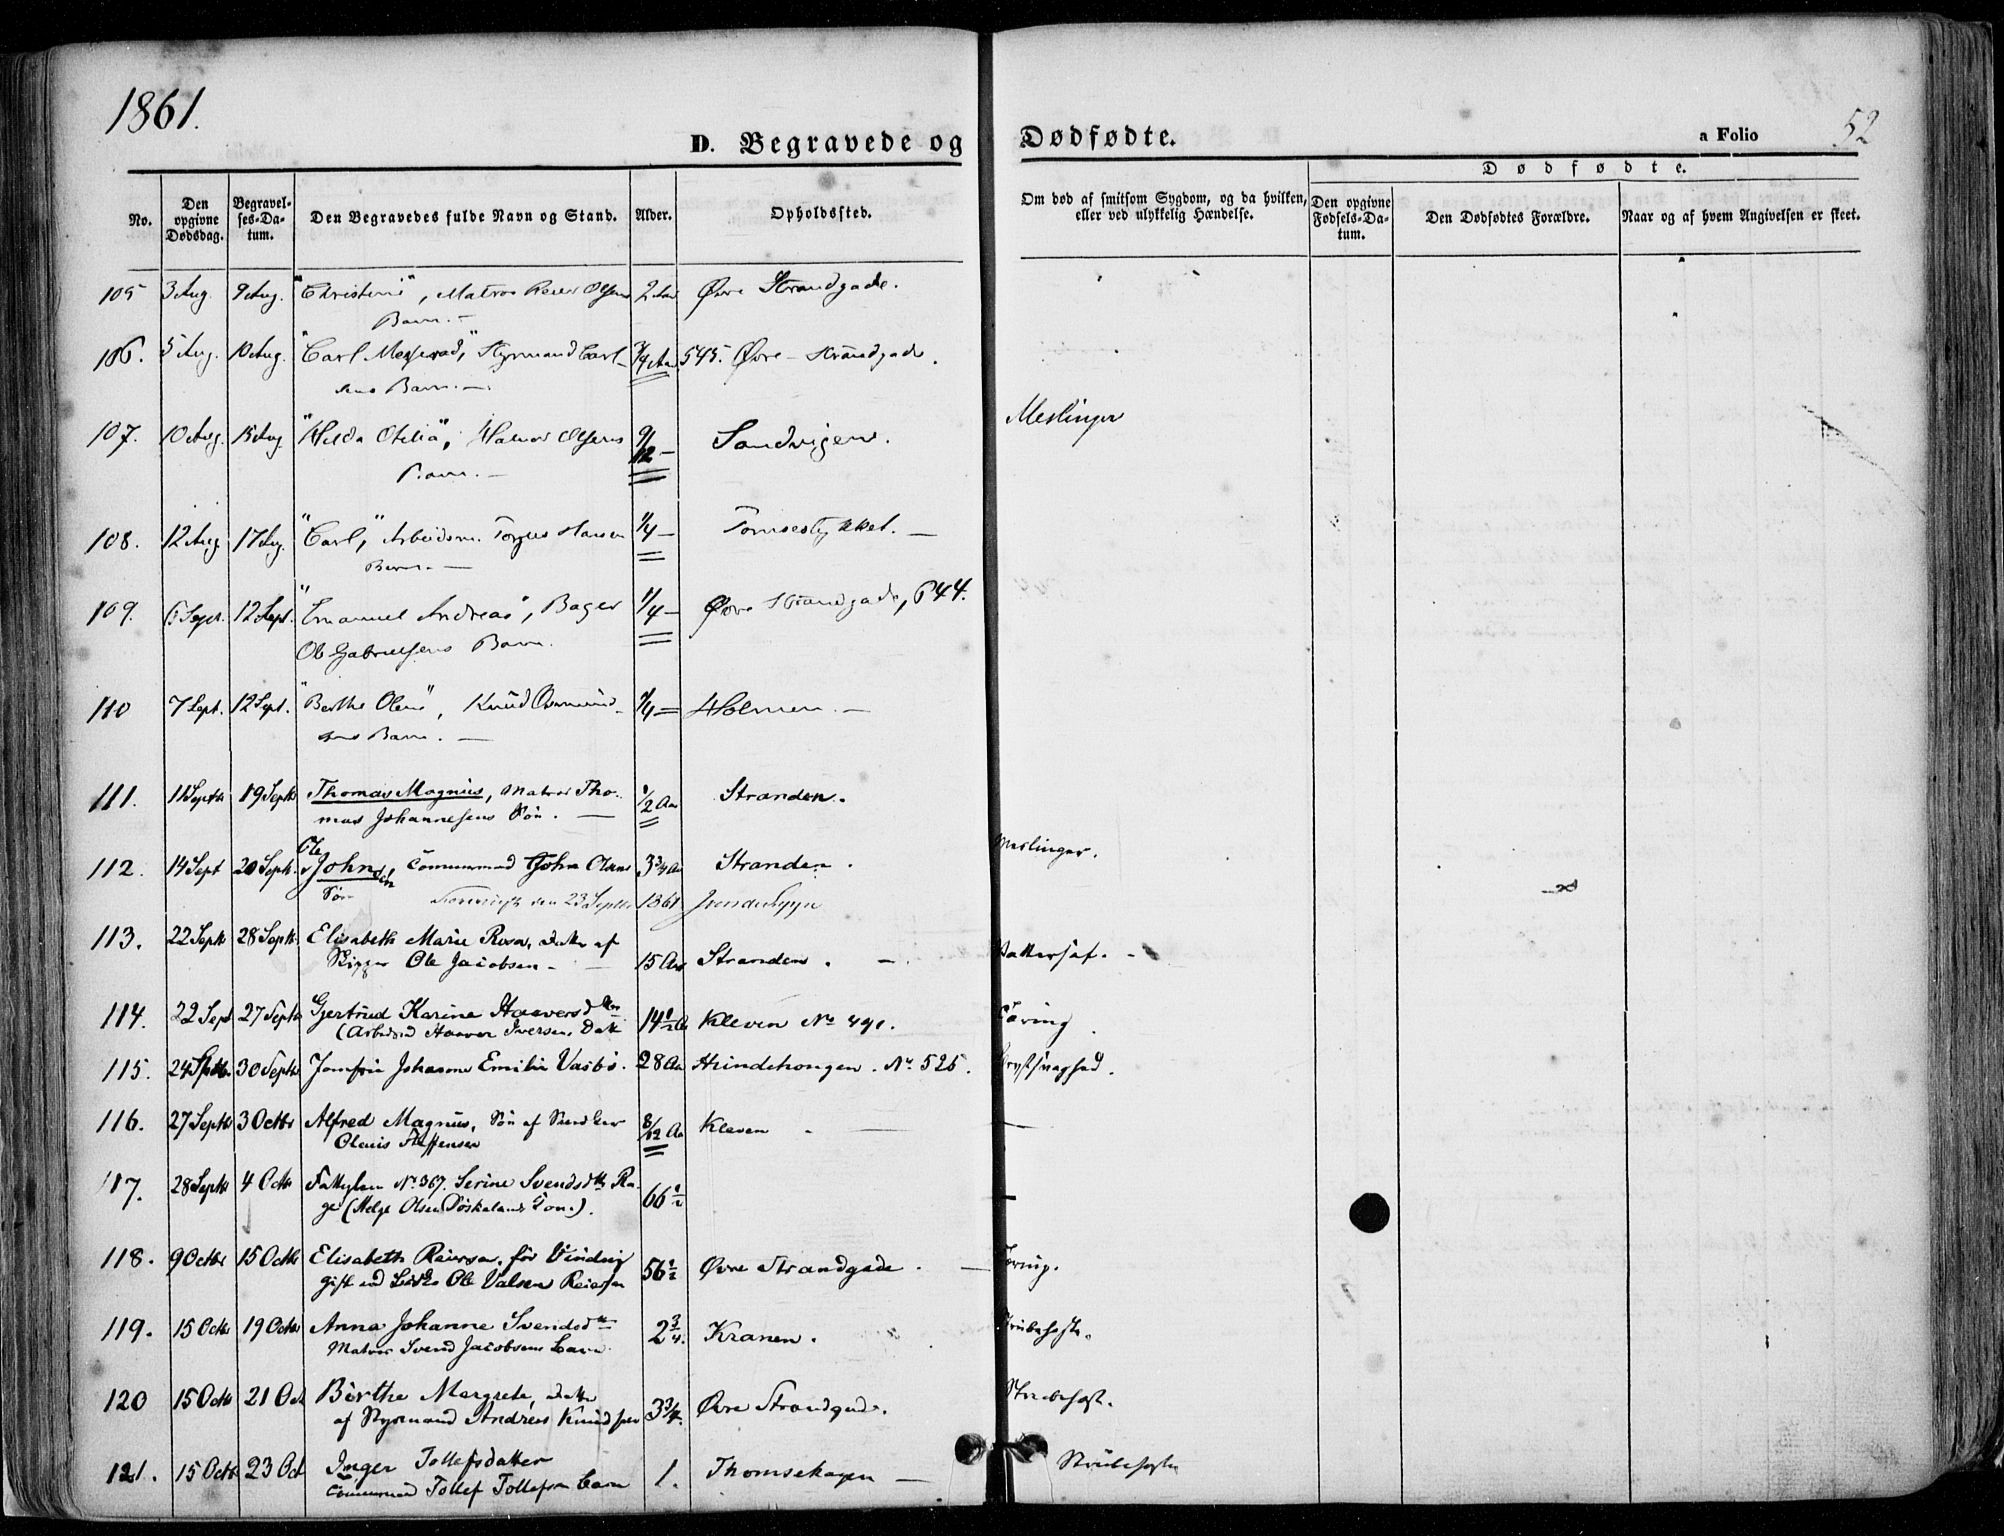 1861.
D. Begravede og Dødfødte.
a Folio 52
No.
Den opgivne Dødsdag.
Begravelses-Datum.
Den Begravedes fulde Navn og Stand.
Alder.
Opholdssted.
Om død af smitsom Sygdom, og da hvilken, eller ved ulykkelig Hændelse.
Dødfødte.
Den opgivne Fødsels-Datum.
Den Dødfødtes Forældre.
Naar og af hvem Angivelsen er skeet.
105 3 Aug. 9 Aug. "Christine", Matros Olsens 2 Aar Øvre Strandgade.
Barn.
106. 5 Aug. 10 Aug. "Carl", Styrmand Carl- 3/4 Aar 545. Øvre Strandgade.
sens Barn.
107. 10 Aug. 15 Aug "Hilda Otelia", Halvor Olsens 9/12 Sandvigen. Meslinger
Barn.
108. 12 Aug. 17 Aug. "Carl", Arbeidsm. Hansen 1/4 Tomsestykket.
Barn.
109. 6 Sept. 12 Sept. "Emanuel Andreas", Bager 1/4 Øvre Strandgade, 644.
Ole Gabrielsens Barn.
110 7 Sept. 12 Sept. "Berthe Oline", Knud Osmund- 1/4 Holmen.
sens Barn.
111. 11 Septr 19 Septr Thomas Magnus, Matros Tho- 1/2 Aar Stranden.
mas Johannesens Søn.
Ole
112. 14 Sept 20 Septr. John John Olsens 3 3/4 Aar Stranden. Meslinger.
Søn den 23 Septbr 1861
113. 22 Septr 28 Septr. Elisabeth Marie Rosa, Datter af
Skipper Ole Jacobsen 15 Aar Stranden. Vattersot.
114. 22 Sept 27 Septr Gjertrud Karine Haaversdtr 14 1/2 Kleven No 491. Tæring
(Haaver Iversens Datt
115. 24 Septbr. 30 Septr Jomfru Johanne Emilie Vasbø. 28 Aar No 525. Brystsvaghed.
116. 27 Septr 3 Octbr Alfred Magnus, Søn af 8/12 Aar Kleven
Olaus Steffensen
117. 28 Septr 4 Octr Fattiglem No 367. Serine Svendsdtr 66 1/2
(Helge Olsen
118. 9 Octbr 15 Octbr Elisabeth Reiersen, før 56 1/2 Øvre Strandgade. Tæring.
gift Ole Reiersen
119. 15 Octr 19 Octr Anna Johanne Svendsdtr 2 3/4. Kranen. Strubehoste.
Matros Svend Jacobsens Barn.
120 15 Octr 21 Oct Birthe Margrete, Datter 3 3/4. Øvre Strandgade. Strubehost.
af Styrmand Andreas Knudsen
121. 15 Octr 23 Oct Inger Tollefsdatter 1. Thomsehagen Strubehoste
Tollef Tollefsens Barn